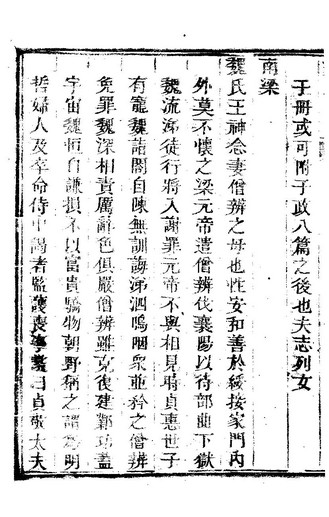 于冊或可附子政八篇之後也夫志列女
南梁
魏氏王神念妻僧辨之母也性安和善於綏接家門內
外莫不懷之梁元帝遣僧辨伐襄陽以待部曲下獄
魏流涕徒行將入謝罪元帝不與相見時貞惠世子
有寵魏詣閣自陳無訓謝涕泗嗚咽衆並矜之僧辨
免罪魏深相責厲辭色俱嚴僧辨雖克復建鄴功蓋
宇宙魏恒自謙損不以富貴驕物朝野稱之謂爲明
哲婦人及卒命侍中謁者監護喪事謚曰貞敬太夫